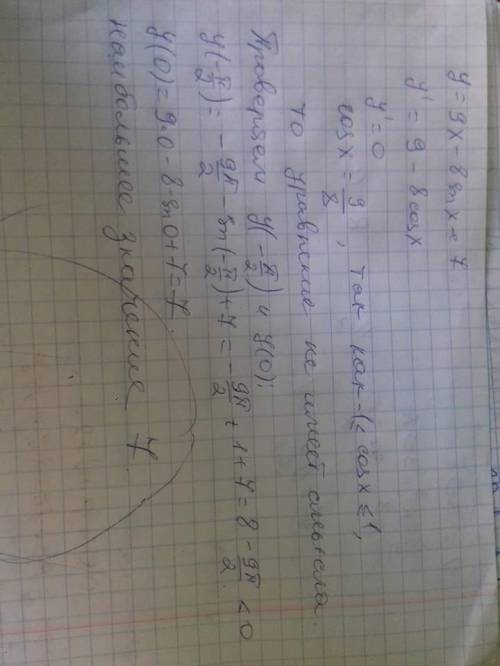 y = 9x - 8 sin x + 7
y' = 9 - 8 cos x
y' = 0
cos x = 9/8, так как -1 ≤ cos x ≤ 1,
то уравнение не имеет смысла.
Проверяем y(-π/2) и y(0):
y(-π/2) = -9π/2 - sin(-π/2) + 7 = -9π/2 + 1 + 7 = 8 - 9π/2 < 0
y(0) = 9·0 - 8 sin 0 + 7 = 7
наибольшее значение 7